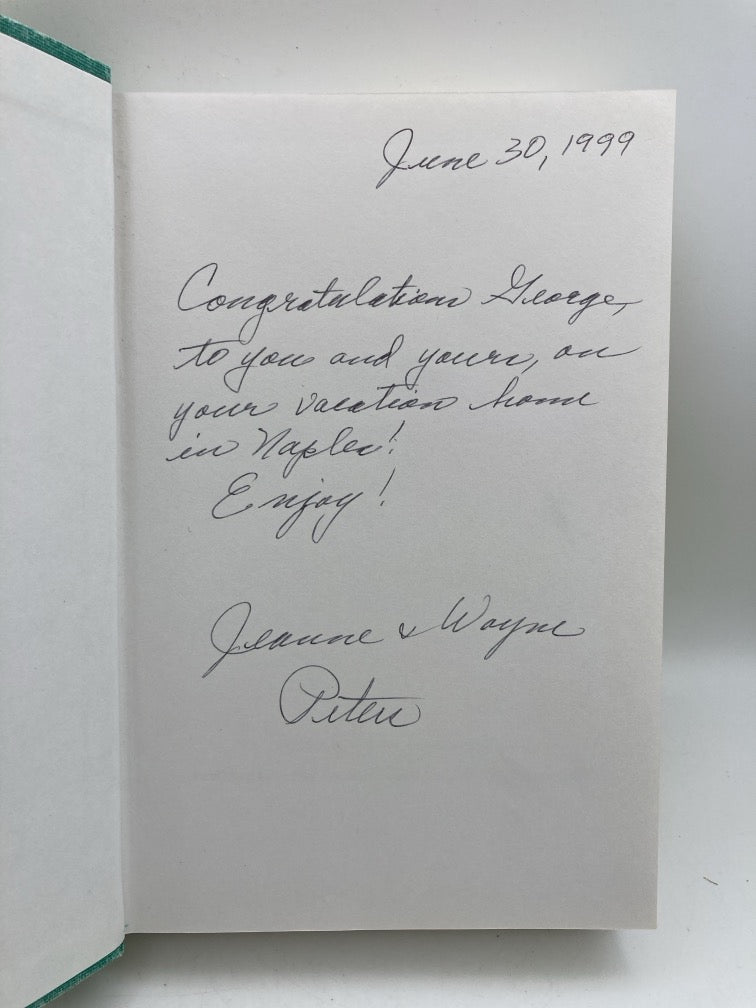 June 30, 1999
Congratulations George,
to you and yours, on
your vacation home
in Naples!
Enjoy!
Jeanne & Wayne
Peters